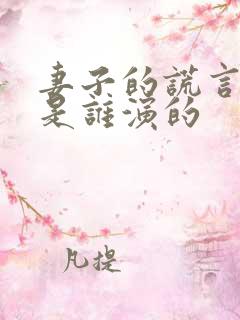 妻子的謊言
是誰演的
凡提